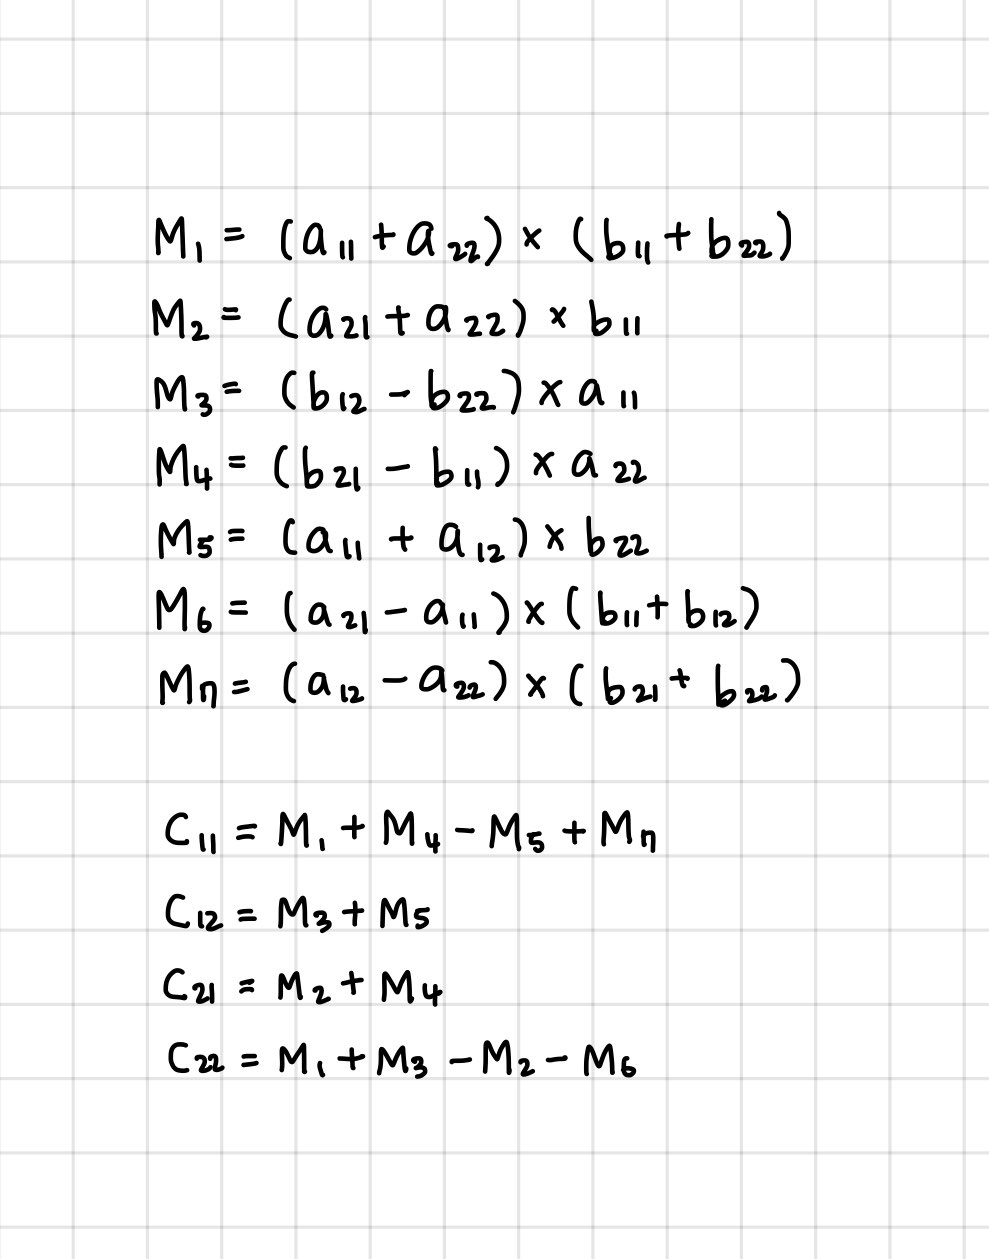 M₁ = (a₁₁ + a₂₂) × (b₁₁ + b₂₂)
M₂ = (a₂₁ + a₂₂) × b₁₁
M₃ = (b₁₂ - b₂₂) × a₁₁
M₄ = (b₂₁ - b₁₁) × a₂₂
M₅ = (a₁₁ + a₁₂) × b₂₂
M₆ = (a₂₁ - a₁₁) × (b₁₁ + b₁₂)
M₇ = (a₁₂ - a₂₂) × (b₂₁ + b₂₂)
C₁₁ = M₁ + M₄ - M₅ + M₇
C₁₂ = M₃ + M₅
C₂₁ = M₂ + M₄
C₂₂ = M₁ + M₃ - M₂ - M₆